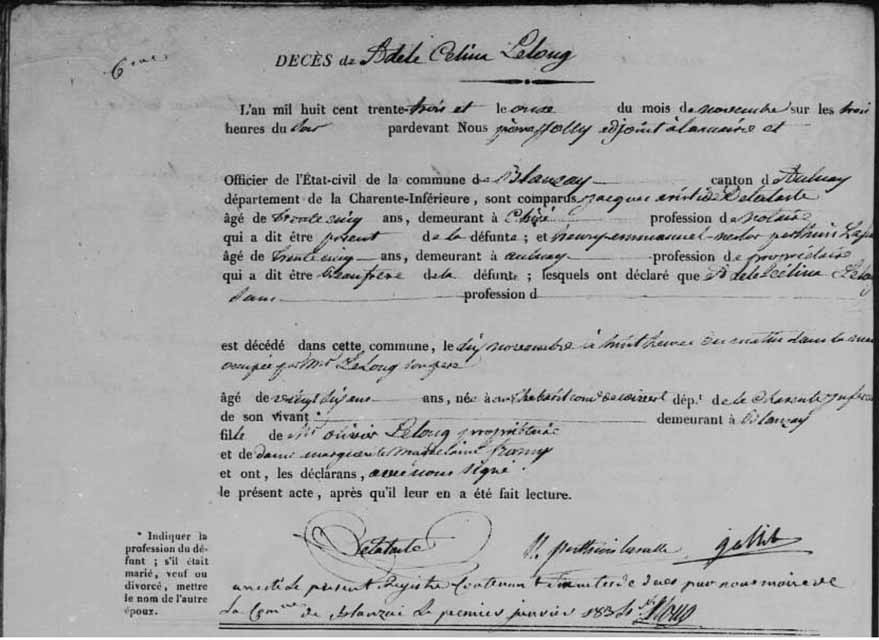 6.me
DECÈS de Adele Celina Leloug
L'an mil huit cent trente-trois et le onze du mois de novembre sur les trois
heures du soir pardevant Nous pierre Jolly adjoint à la mairie et
Officier de l'État-civil de la commune de Blanzay canton d Aulnay
département de la Charente-Inférieure, sont comparus jacques aristide Delataste
âgé de trente cinq ans, demeurant à Chizé profession de notaire
qui a dit être de la défunte ; et henry emmanuel nestor perthuis
âgé de trente cinq ans, demeurant à aulnay profession de propriétaire
qui a dit être beaufrère de la défunte ; lesquels ont déclaré que Adele Célina Leloug
sans profession d
est décédé dans cette commune, le dix novembre à huit heures du matin dans la
occupée par Mr Leloug son pere
âgé de vingt six ans ans, née à dép.t de la Charente
de son vivant * demeurant à Blanzay
fille de Mr olivier Leloug propriétaire
et de dame marguerite Magdelaine
et ont, les déclarans, avec nous signé
le présent acte, après qu'il leur en a été fait lecture.
* Indiquer la
profession du dé-
funt ; s'il était
marié, veuf ou
divorcé, mettre
le nom de l'autre
époux.
Delataste perthuis
arrêté le present Registre Contenant par nous maire de
La Comune de Blanzai Le premier janvier 1834